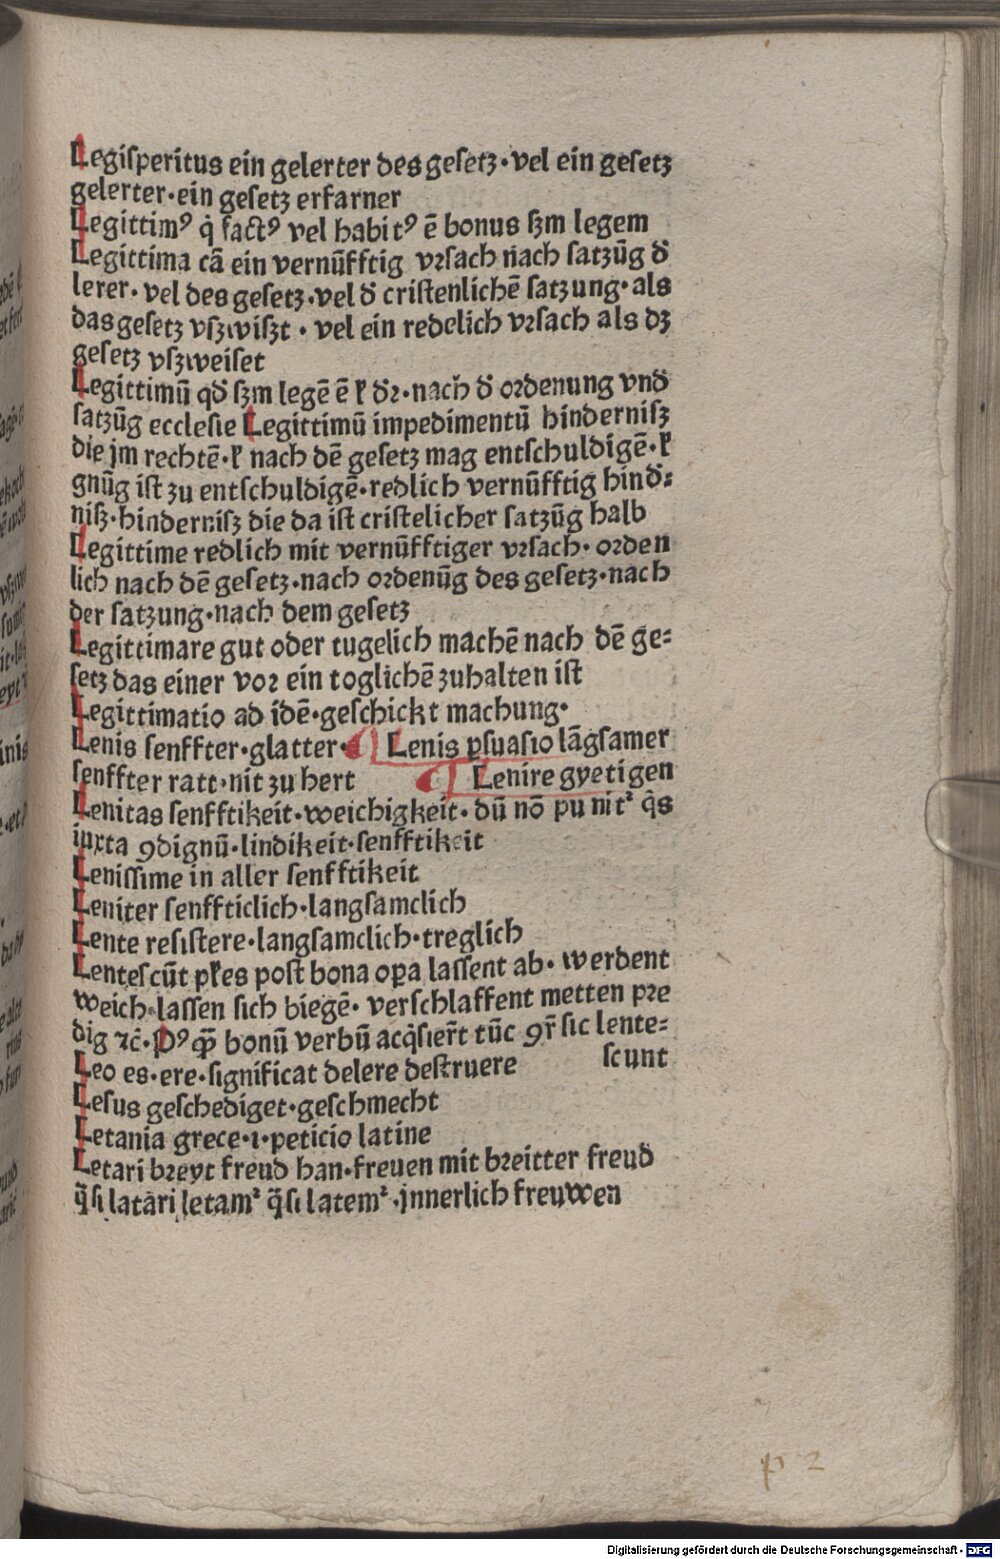 Legiſperitus ein gelerter des geſetz·vel ein geſetz
gelerter·ein geſetz erfarner
Legittimꝰ q̇ factꝰ vel habitꝰ ē bonus ſꝫm legem
Legittima cā ein vernūfftig vꝛſach nach ſatzūg d̄
lerer·vel des geſetz·vel d̄ criſtenlichē ſatzung·als
das geſetz vſzwiſzt·vel ein redelich vꝛſach als dꝫ
geſetz vſzweiſet
Legittimū qd̄ ſꝫm legē ē ł d̄ꝛ·nach d̄ oꝛdenung vnd̄
ſatzūg eccleſie Legittimū impedimentū hinderniſz
die jm rechtē·ł nach dē geſetz mag entſchuldigē·ł
gnūg iſt zu entſchuldigē·redlich vernūfftig hind̄⸗
niſz·hinderniſz die da iſt criſtelicher ſatzūg halb
Legittime redlich mit vernūfftiger vꝛſach·oꝛden
lich nach dē geſetz·nach oꝛdenūg des geſetz·nach
der ſatzung·nach dem geſetz
Legittimare gut oder tugelich machē nach dē ge⸗
ſetz das einer voꝛ ein toglichē zuhalten iſt
Legittimatio ad idē·geſchickt machung·
Lenis ſenffter·glatter· ¶ Lenis ꝑſuaſio lāgſamer
ſenffter ratt·nit zu hert ¶ Lenire gyetigen
Lenitas ſenfftikeit·weichigkeit·dū nō punitᷣ q̄s
iuxta ꝯdignū·lindikeit·ſenfftikeit
Leniſſime in aller ſenfftikeit
Leniter ſenffticlich·langſamclich
Lente reſiſtere·langſamclich·treglich
Lenteſcūt pƚes poſt bona oꝑa laſſent ab·werdent
weich·laſſen ſich biegē·verſchlaffent metten pꝛe
dig ⁊c̄·Pꝰ qꝫ bonū verbū acq̇ſier̄t tūc ꝯr̄ ſic lente⸗
Leo es·ere·ſignificat delere deſtruere ſcunt
Leſus geſchediget·geſchmecht
Letania grece·ı·peticio latine
Letari bꝛeyt freud han·freuen mit bꝛeitter freud
q̄ſi latari letamᷣ q̄ſi latemᷣ·jnnerlich freuwen
Digitalisierung gefördert durch die Deutsche Forschungsgemeinschaft · DFG